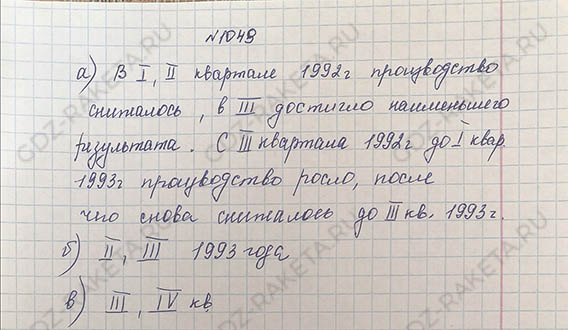 №1049
а) В I, II квартале 1992г производство
снижалось, в III достигло наименьшего
результата. С III квартала 1992г до I квар.
1993г производство росло, после
чего снова снижалось до III кв. 1993г.
б) II, III 1993 года
в) III, IV кв
GDZ-RAKETA.RU